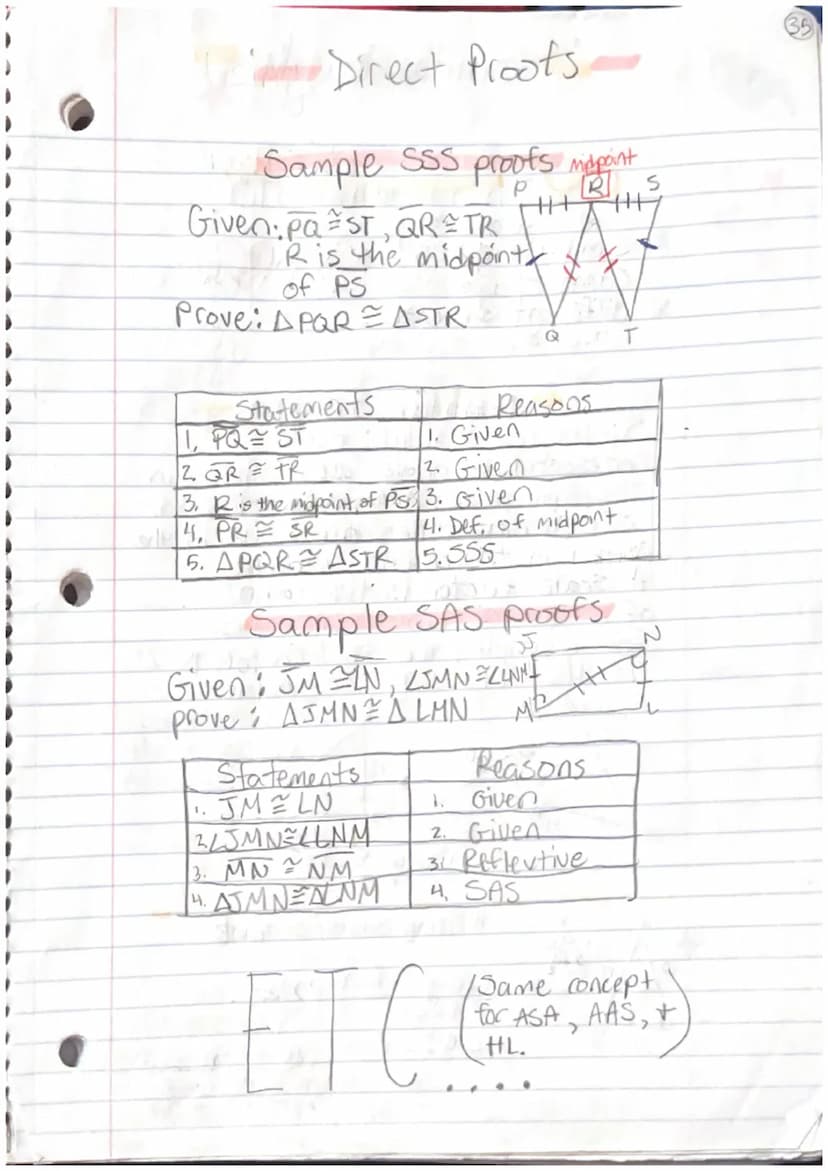 35
Direct Proofs
Sample SSS proofs
midpoint
P R S
Given: PQ ≅ ST, QR ≅ TR
R is the midpoint
of PS
Prove: △PQR ≅ △STR
Q T
Statements Reasons
1. PQ ≅ ST 1. Given
2. QR ≅ TR 2. Given
3. R is the midpoint of PS 3. Given
4. PR ≅ SR 4. Def. of midpoint
5. △PQR ≅ △STR 5. SSS
Sample SAS proofs
J N
Given: JM ≅ LN, ∠JMN ≅ ∠LNM
prove: △JMN ≅ △LMN
M L
Statements Reasons
1. JM ≅ LN 1. Given
2. ∠JMN ≅ ∠LNM 2. Given
3. MN ≅ NM 3. Reflevtive
4. △JMN ≅ △LNM 4. SAS
ETC....
(Same concept
for ASA, AAS, +
HL.)